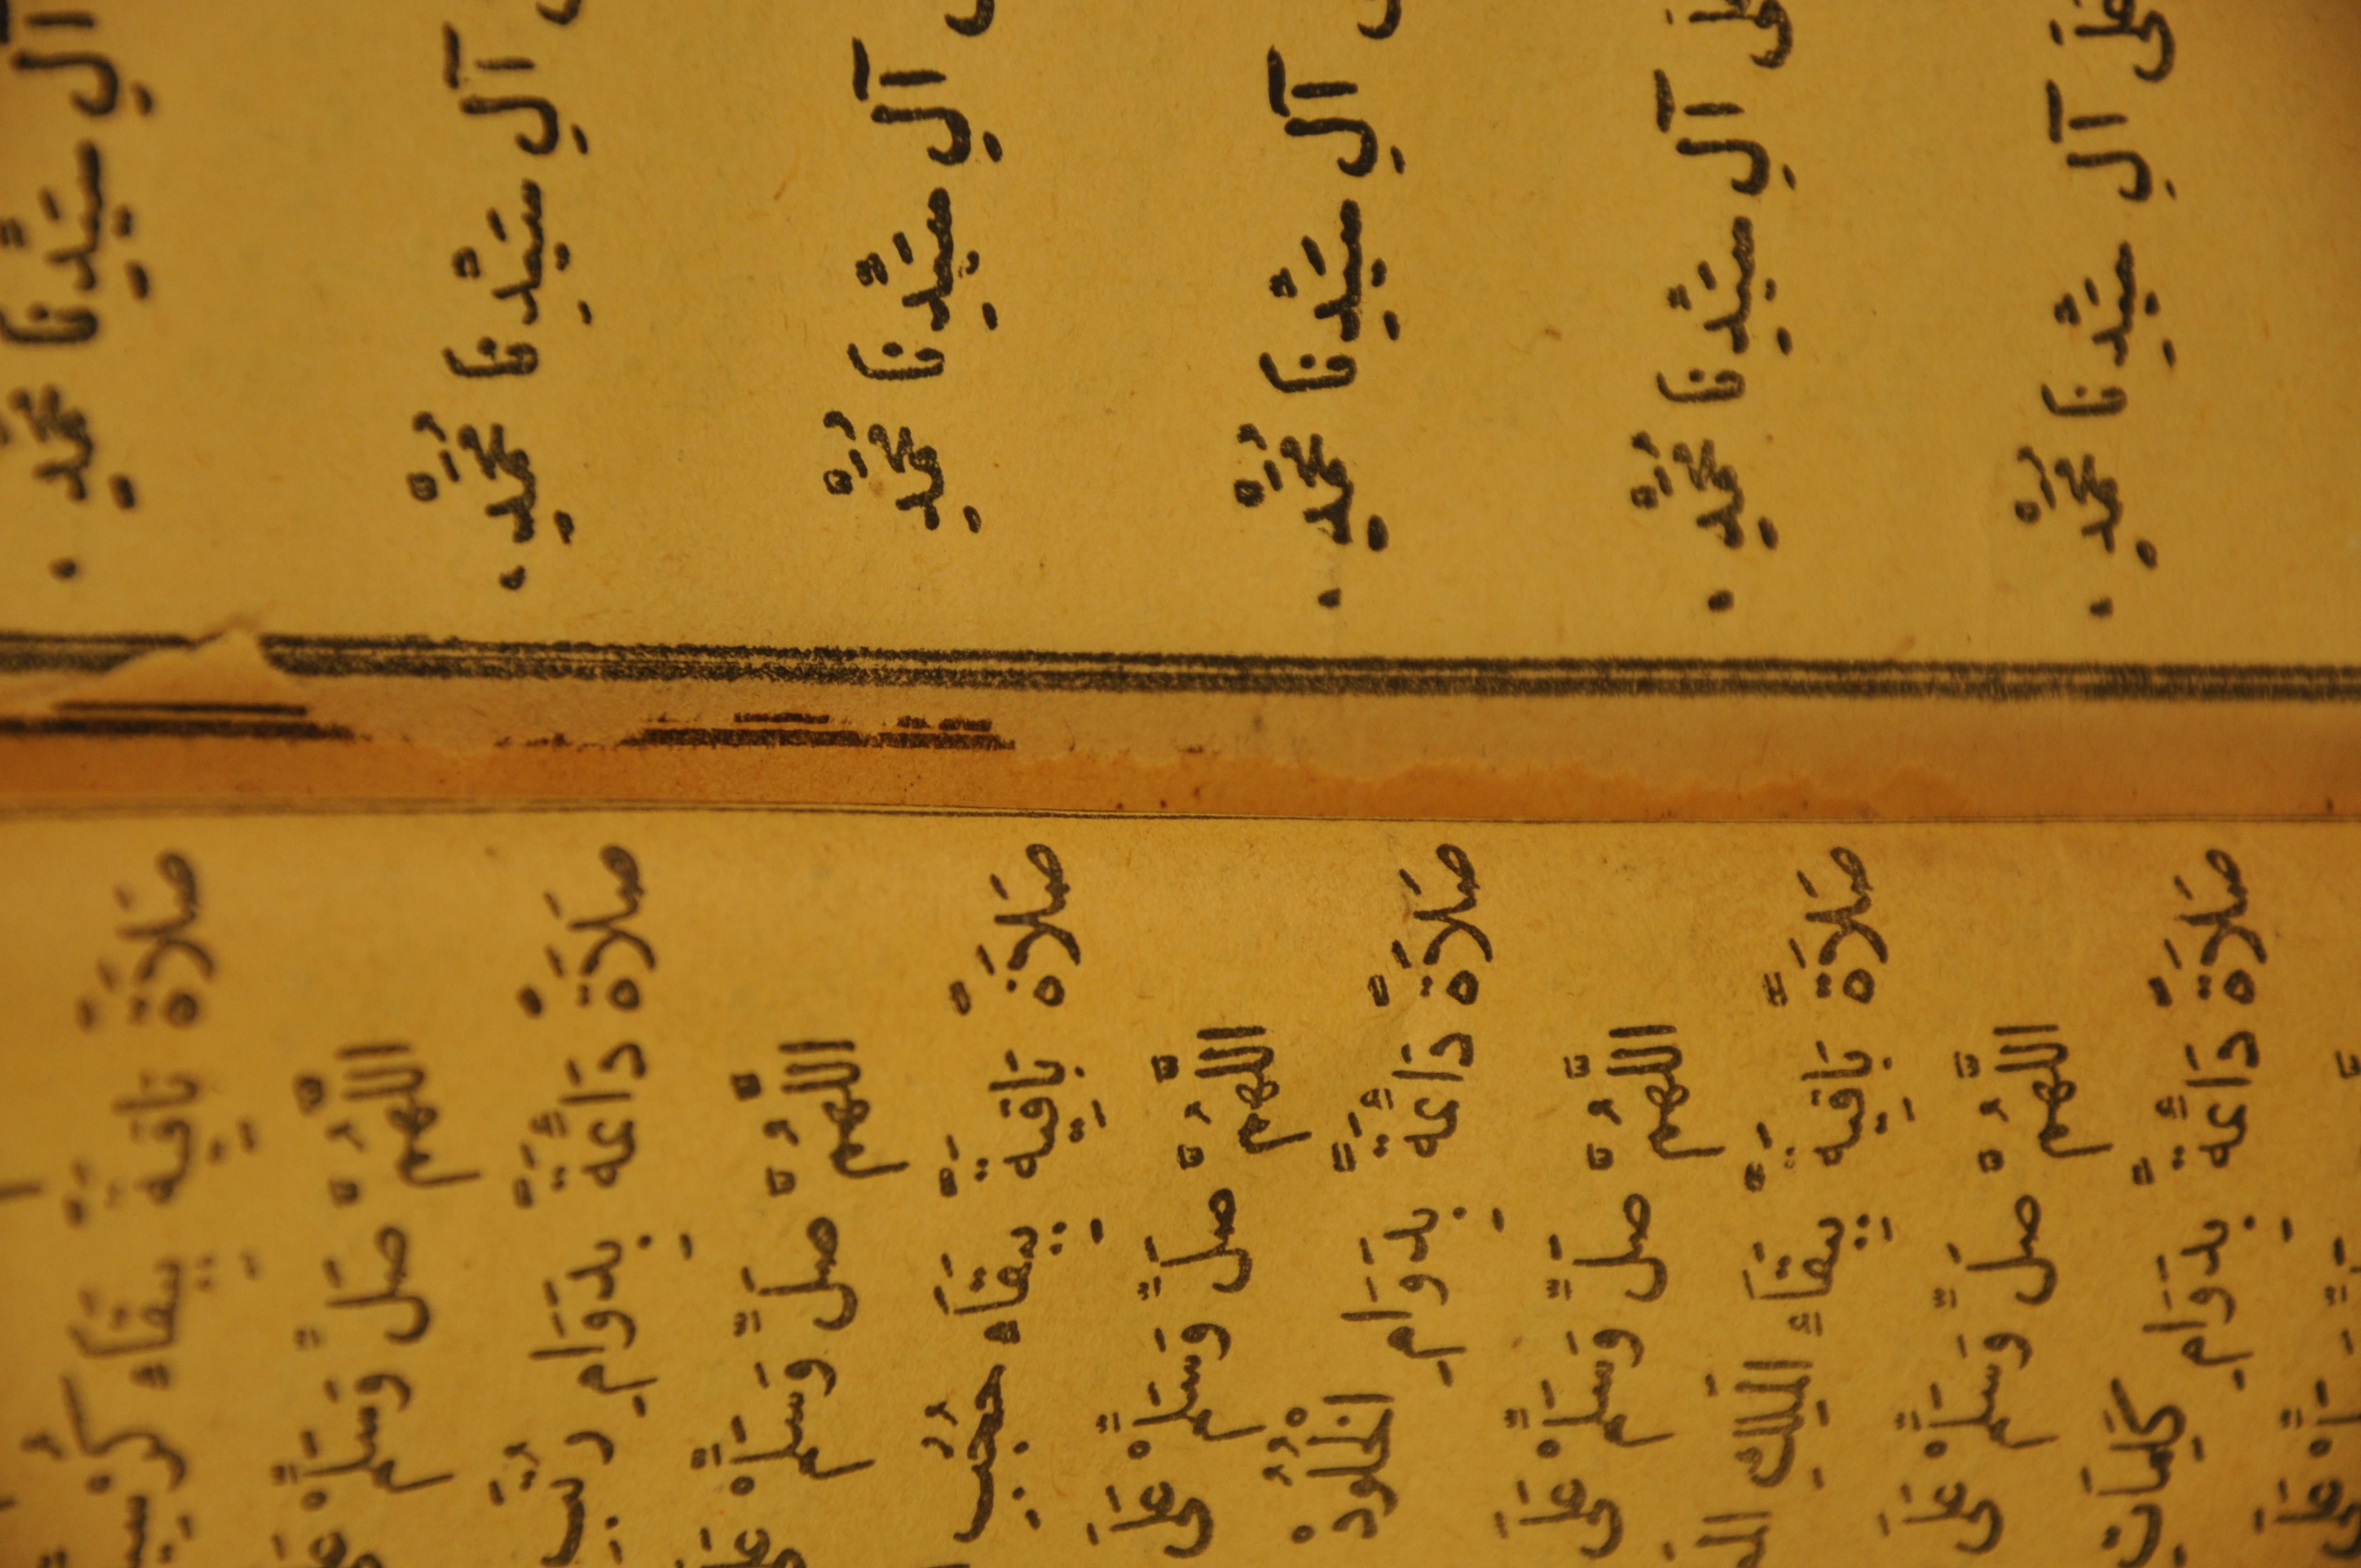 آلِ سَيِّدِنَا مُحَمَّدٍ .
آلِ سَيِّدِنَا مُحَمَّدٍ .
آلِ سَيِّدِنَا مُحَمَّدٍ
آلِ سَيِّدِنَا مُحَمَّدٍ .
آلِ سَيِّدِنَا مُحَمَّدٍ .
عَلَى آلِ سَيِّدِنَا مُحَمَّدٍ .
صَلَاةً بَاقِيَةً بِبَقَاءِ
اللّٰهُمَّ صَلِّ وَسَلِّمْ
صَلَاةً دَائِمَةً بِدَوَامِ
اللّٰهُمَّ صَلِّ وَسَلِّمْ
صَلَاةً بَاقِيَةً بِبَقَاءِ حُجُبِ
اللّٰهُمَّ صَلِّ وَسَلِّمْ عَلَى
صَلَاةً دَائِمَةً بِدَوَامِ الْخُلُودْ
اللّٰهُمَّ صَلِّ وَسَلِّمْ عَلَى
صَلَاةً بَاقِيَةً بِبَقَاءِ الْمَلِكِ
اللّٰهُمَّ صَلِّ وَسَلِّمْ عَلَى
صَلَاةً دَائِمَةً بِدَوَامِ كَلِمَاتِ
عَلَى